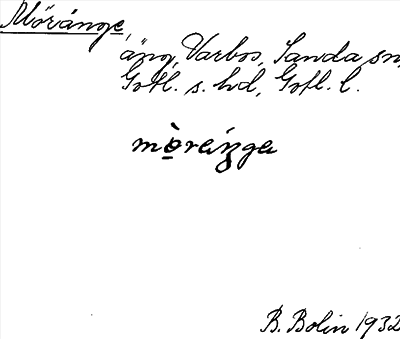 Möränge,
äng, Varbos, Sanda sn,
Gotl. s. hd, Gotl. l.
mòráŋga
B. Bolin 1932